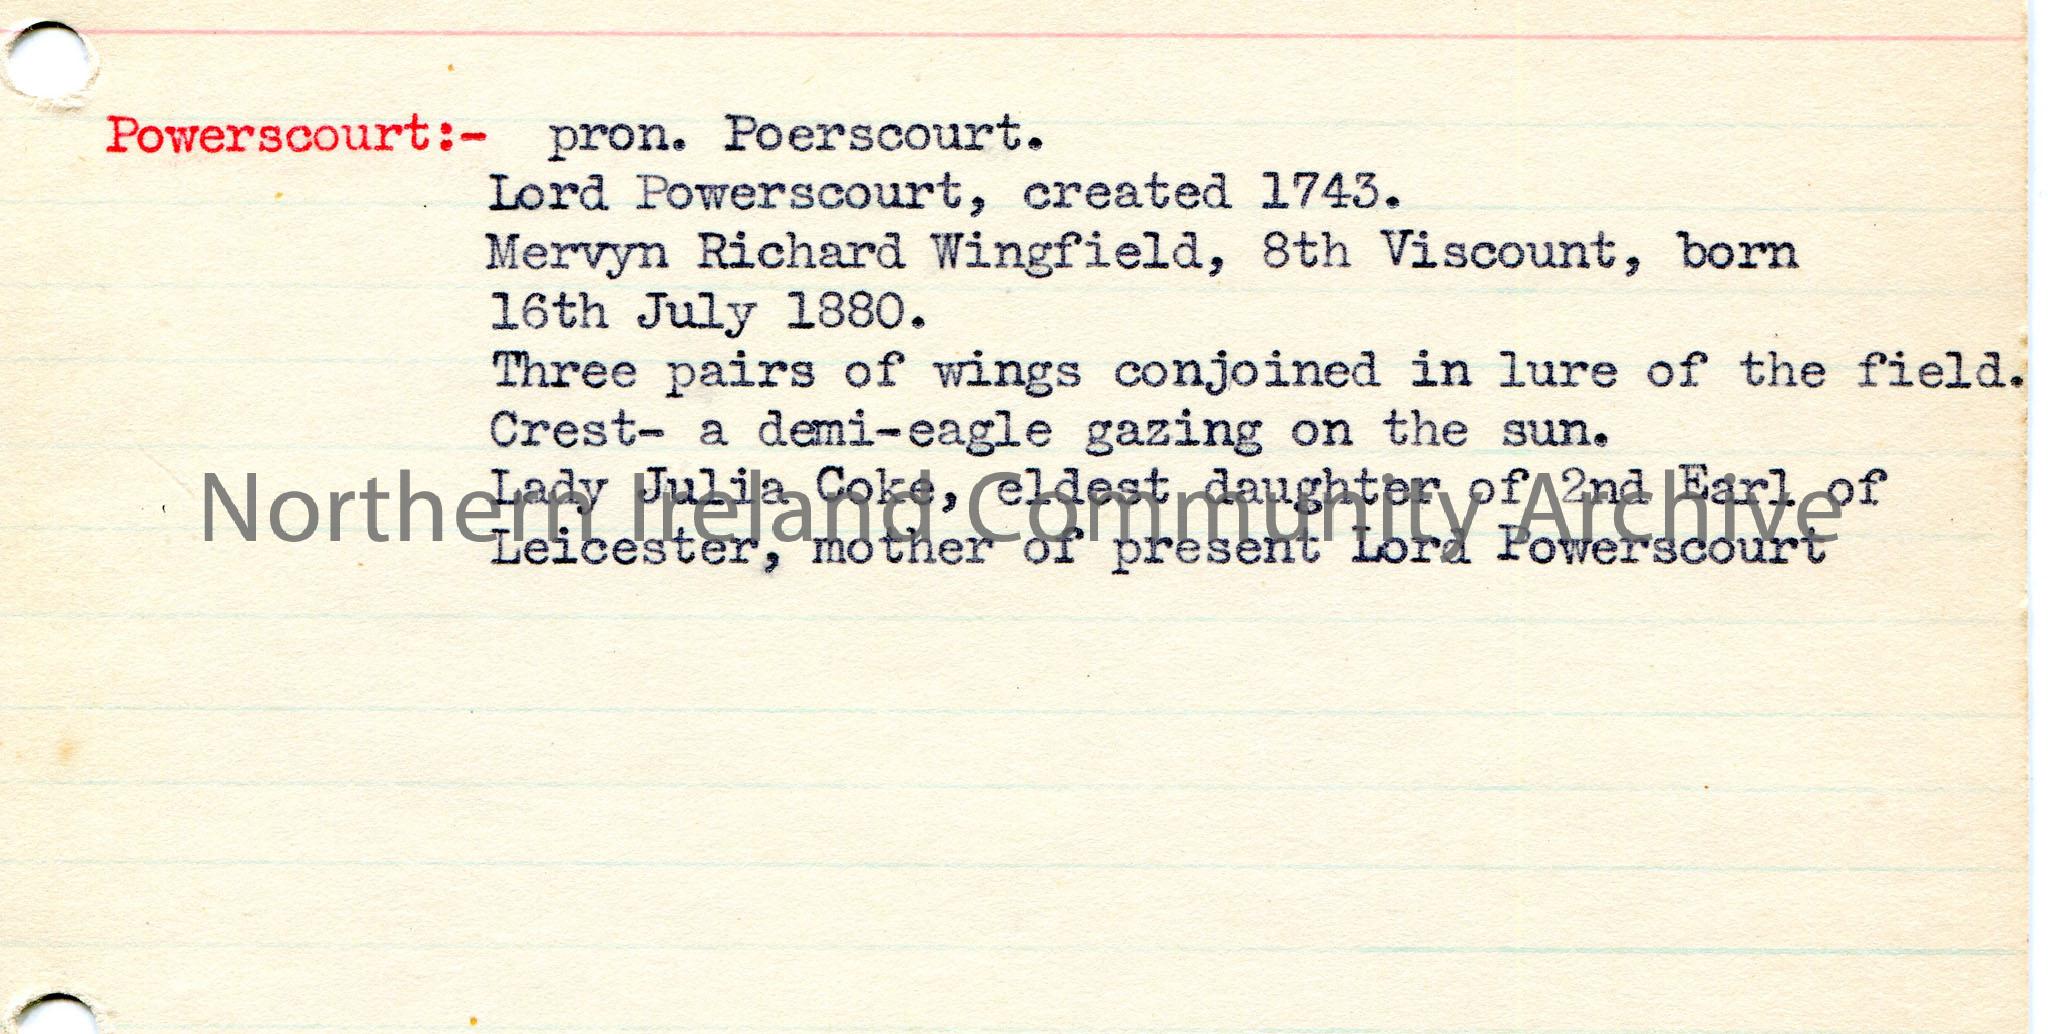 Powerscourt:- pron. Poerscourt.
Lord Powerscourt, created 1743.
Mervyn Richard Wingfield, 8th Viscount, born
16th July 1880.
Three pairs of wings conjoined in lure of the field.
Crest- a demi-eagle gazing on the sun.
Lady Julia Coke, eldest daughter of 2nd Earl of
Northern Ireland Community Archive
Leicester, mother of present Lord Powerscourt